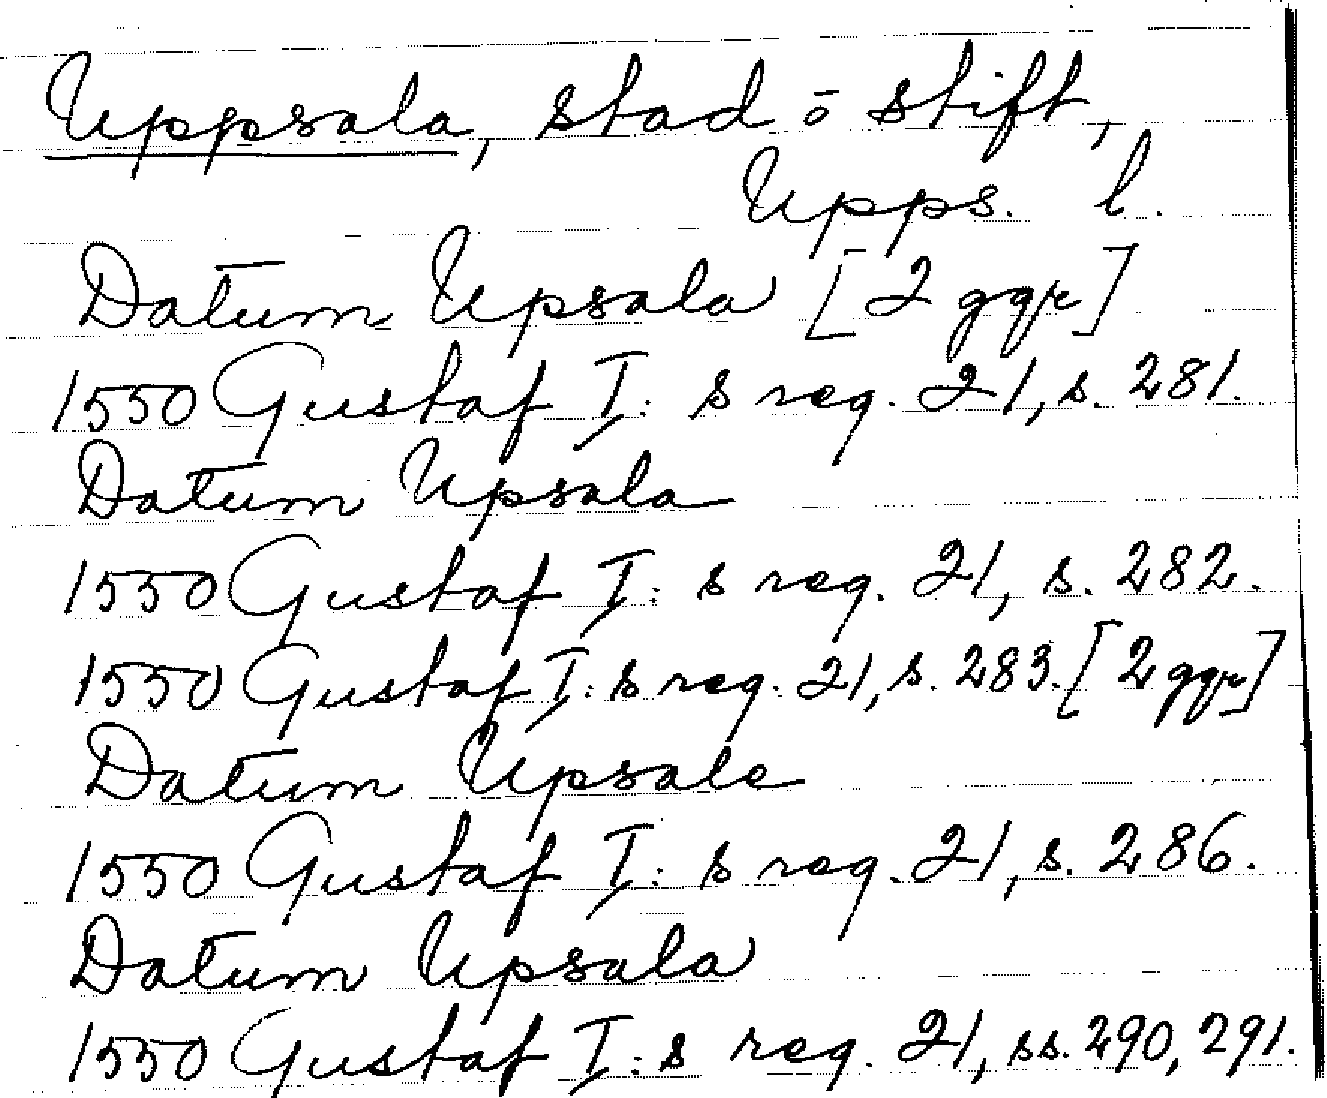 Uppsala, stad ō stift,
Upps. l.
Datum Upsala [2 ggr]
1550 Gustaf I:s reg. 21, s. 281.
Datum Upsala
1550 Gustaf I:s reg. 21, s. 282.
1550 Gustaf I:s reg. 21, s. 283. [2 ggr]
Datum Upsale
1550 Gustaf I:s reg. 21, s. 286.
Datum Upsala
1550 Gustaf I:s reg. 21, ss. 290, 291.